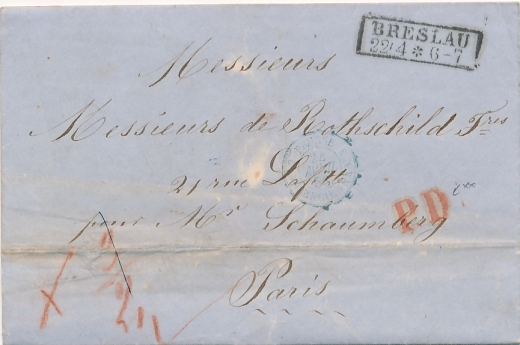 BRESLAU
22/4 * 6-7
Messieurs
Messieurs de Rothschild Fres
21 rue Lafitte
P.D.
pour Mr Schaumberg
Paris